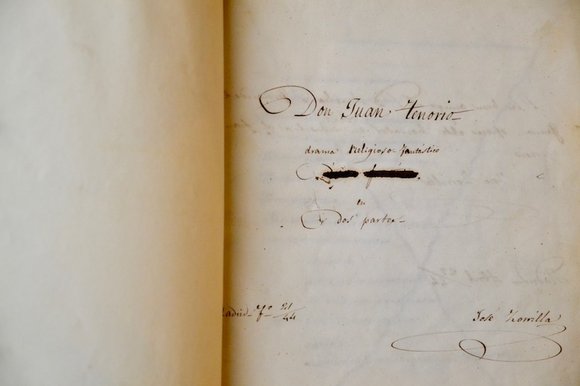 Don Juan Tenorio
drama religioso-fantastico
en
dos partes
José Zorrilla